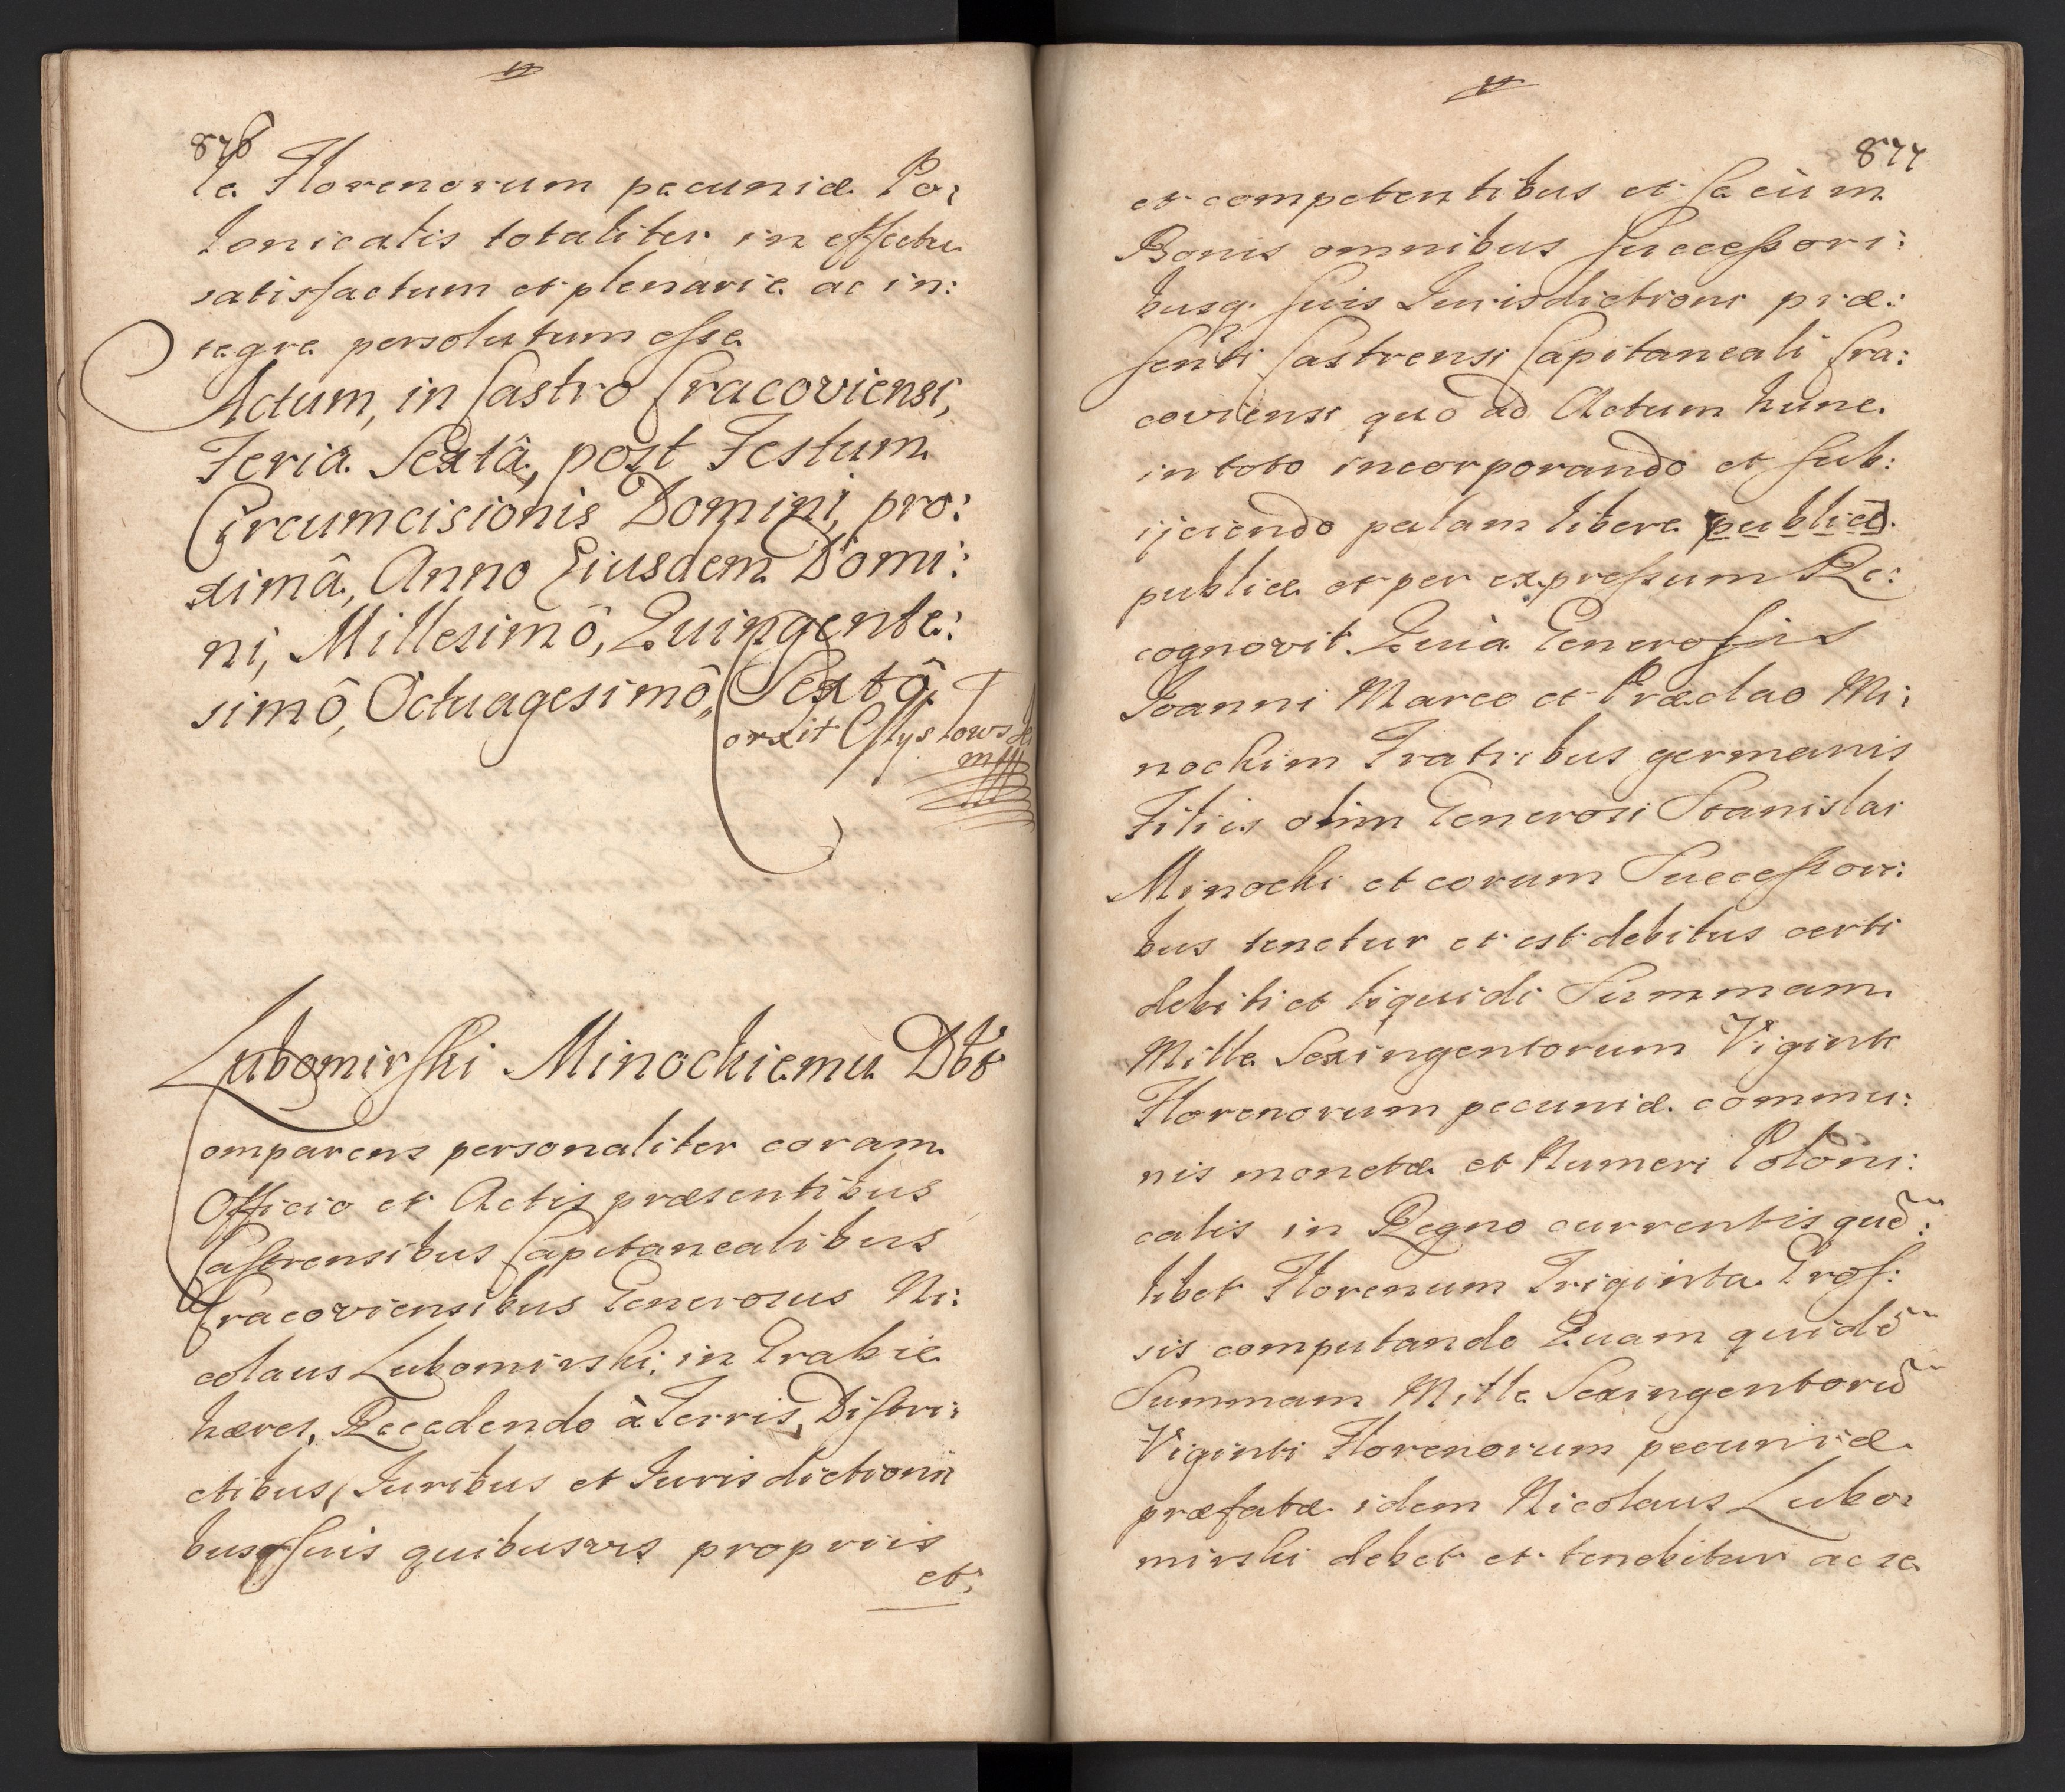 876
le Florenorum pecuniæ Po:
lonicalis totaliter in effectu
satisfactum et plenarie ac in:
tegre persolutum esse
Actum, in Castro Cracoviensi,
Feria Sextâ, post Festum
Circumcisionis Domini, pro:
ximâ, Anno Eiusdem Domi:
ni, Millesimô, Quingente:
simô, Octuagesimô, Sextô.
Lubomirski Minockiemu Dbt
Comparens personaliter coram
Officio et Actis præsentibus
Castrensibus Capitanealibus
Cracoviensibus Generosus Ni:
colaus Lubomirski, in Grabie
hæres, Recedendo à Terris, Distri:
ctibus, Juribus et Jurisdictioni
busq suis quibusvis propriis
et
877
et competentibus et se cùm
Bonis omnibus Successori:
busq. suis Jurisdictioni præ:
senti Castrensi Capitaneali Cra:
coviensi quo ad Actum hunc
in toto incorporando et sub:
ijciendo palam libere publice
publice et per expressum Re:
cognovit. Quia Generosis
Joanni Marco et Præclao Mi:
nockim Fratribus germanis
Filiis olim Generosi Stanislai
Minocki et eorum Successori:
bus tenetur et est debitus certi
debiti et liquidi Summam
Mille Sexingentorum Viginti
Florenorum pecuniæ commu:
nis monetæ et Numeri Poloni:
calis in Regno currentis quē:
libet Florenum Triginta Gros:
sis computando Quam quidē
Summam Mille Sexingentorū
Viginti Florenorum pecuniæ
præfatæ idem Nicolaus Lubo:
mirski debet et tenebitur ac se